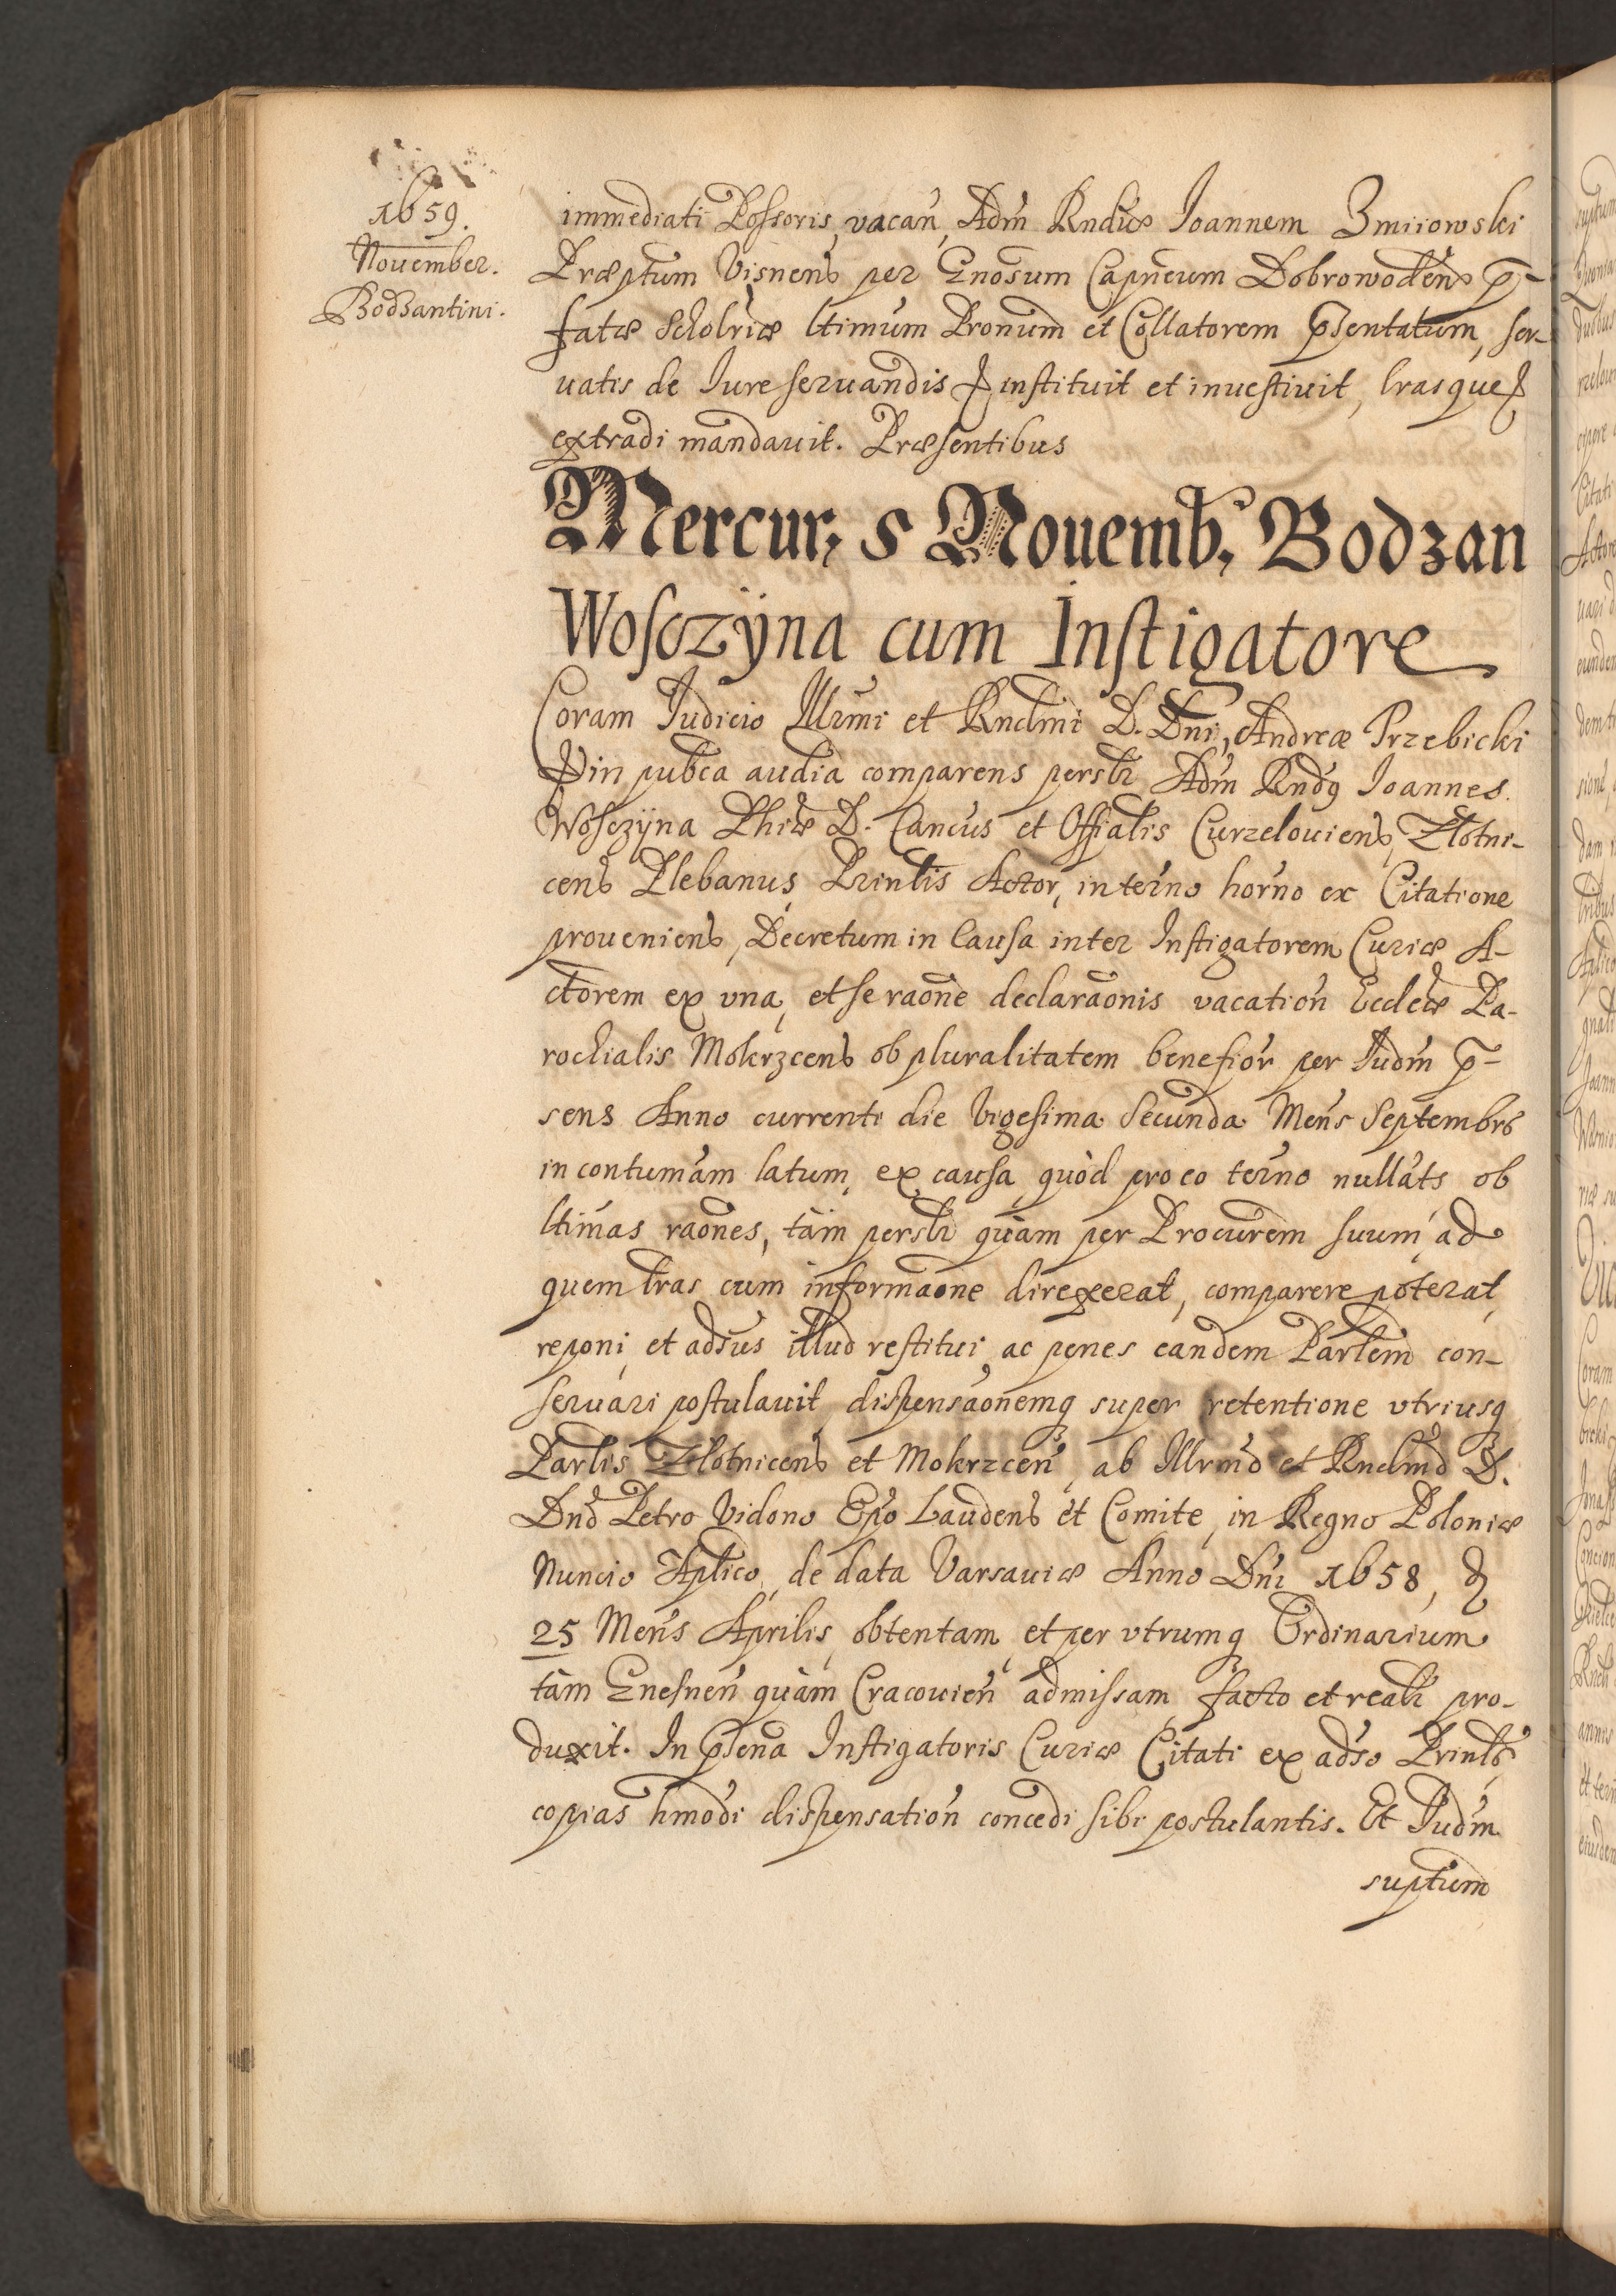 1659.
November.
Bodzantini.
immediati Possoris, vacań, Adm̃ Rndũ Joannem Zmiiowski
Præptum Visnens per Gnosum Capneum Dobrowodens p̃-
fatæ Scholriæ ltimum Pronum et Collatorem p̃sentatum, ser-
uatis de Iure seruandis & instituit et inuestiuit, lrasque &
extradi mandauit. Præsentibus
Mercur; 5 Nouemb; Bodzan
Wosczÿna cum Instigatore
Coram Iudicio Illrmi et Rndmi D. Dni, Andreæ Trzebicki
& in pubca audia comparens persłr Adm̃ Rndg Joannes
Wosczÿna Phiæ D. Cancus et Offialis Curzelouiens, Złotni-
cens Plebanus, Prinłis Actor, in terno horno ex Citatione
proueniens, Decretum in Causa inter Instigatorem Curiæ A-
ctorem ex vna, et se raone declaraonis vacation Eccleæ Pa-
rochialis Mokrzcens ob pluralitatem beneficior per Iudm p̃-
sens Anno currenti die Vigesima Secunda Mens Septembrs
in contumam latum, ex causa, quòd pro eo terno nullats ob
ltimas raones, tàm persłr quàm per Procurem suum, ad
quem lras cum informaone direxerat, comparere poterat,
reponi, et adsus illud restitui, ac penes eandem Parłem con-
seruari postulauit, dispensaonemq super retentione vtriusq
Parłis Złotnicens et Mokrzceń, ab Illrmo et Rndmo D.
Dno Petro Vidono Epo Laudens et Comite, in Regno Poloniæ
Nuncio Aplico, de data Varsauiæ Anno Dni 1658, d
25 Mens Aprilis, obtentam, et per vtrumq Ordinarium
tàm Gnesneń quàm Cracouień admissam, facto et realr pro-
duxit. In p̃sena Instigatoris Curiæ Citati ex adso Prinłr
copias hmodi dispensation concedi sibi postulantis. Et Iudm
suptum